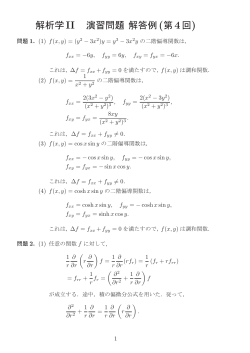 解析学 II 演習問題 解答例 (第 4 回)
問題 1. (1) f(x, y) = (y² − 3x²)y = y³ − 3x²y の二階偏導関数は,
f_xx = −6y, f_yy = 6y, f_xy = f_yx = −6x.
これは, Δf = f_xx + f_yy = 0 を満たすので, f(x, y) は調和関数.
(2) f(x, y) = 1/(x² + y²) の二階偏導関数は,
f_xx = 2(3x² − y²)/(x² + y²)³, f_yy = 2(x² − 3y²)/(x² + y²)³,
f_xy = f_yx = 8xy/(x² + y²)³.
これは, Δf = f_xx + f_yy ≠ 0.
(3) f(x, y) = cos x sin y の二階偏導関数は,
f_xx = − cos x sin y, f_yy = − cos x sin y,
f_xy = f_yx = − sin x cos y.
これは, Δf = f_xx + f_yy ≠ 0.
(4) f(x, y) = cosh x sin y の二階偏導関数は,
f_xx = cosh x sin y, f_yy = − cosh x sin y,
f_xy = f_yx = sinh x cos y.
これは, Δf = f_xx + f_yy = 0 を満たすので, f(x, y) は調和関数.
問題 2. (1) 任意の関数 f に対して,
1/r ∂/∂r (r ∂/∂r) f = 1/r ∂/∂r (r f_r) = 1/r (f_r + r f_rr)
= f_rr + 1/r f_r = (∂²/∂r² + 1/r ∂/∂r) f
が成立する. 途中, 積の偏微分公式を用いた. 従って,
∂²/∂r² + 1/r ∂/∂r = 1/r ∂/∂r (r ∂/∂r).
1